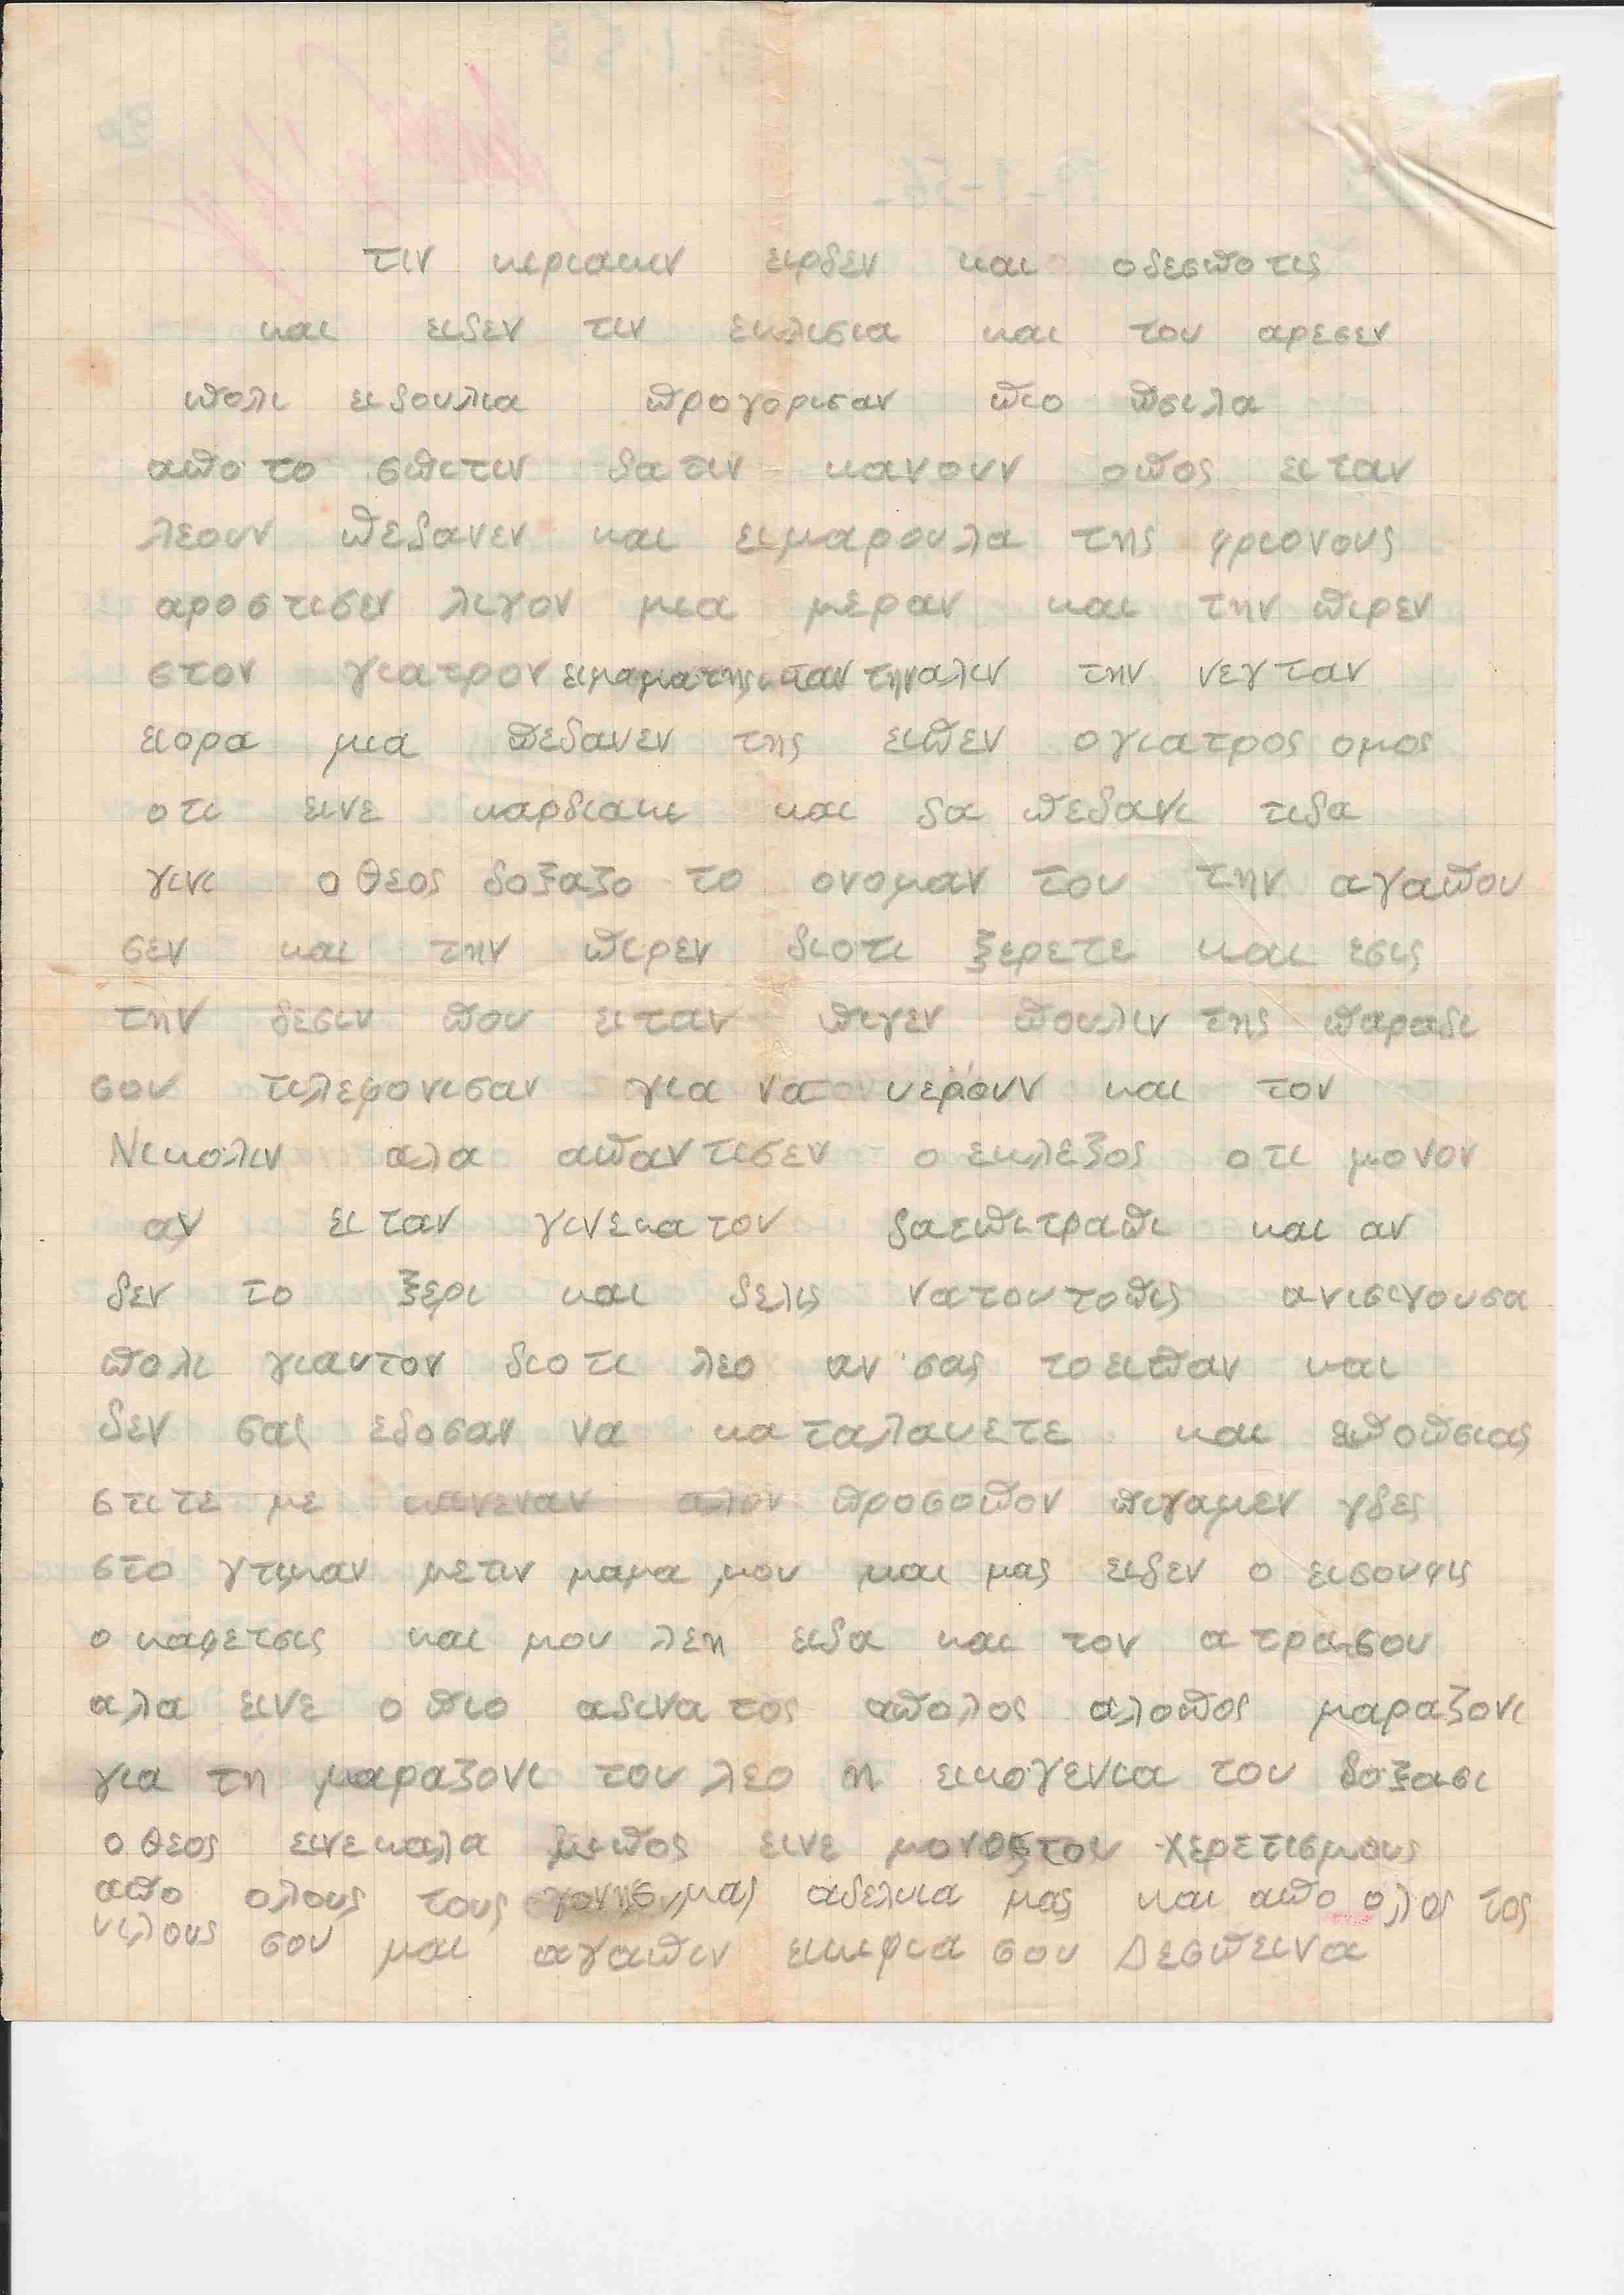 τιν κιριακιν ειρδεν και οδεσποτις
και ειδεν τιν εκλισια και του αρεσεν
πολι ειδουλια προγορισαν πιο πσιλα
απο το σπιτιν δα τιν κανουν οπος ειταν
λεουν πεδανεν και ειμαρουλα της φριονους
αροστισεν λιγον μια μεραν και την πιρεν
στον γιατρον ειμαματης την αλιν την νεγταν
ειορα μια πεδανεν της ειπεν ογιατρος ομος
οτι εινε καρδιακι και δα πεδανι τιδα
γινι ο θεος δοξαζο το ονομαν του την αγαπου
σεν και την πιρεν διοτι ξερετε και εσις
την δεσιν που ειταν πιγεν πουλιν της παραδι
σου τιλεφονισαν για να φερουν και τον
Νικολιν αλα απαντισεν ο εκλεξος οτι μονον
αν ειταν γινεκα του δαεπιτραπι και αν
δεν το ξερι και δελις νατουτοπις ανισιγουσα
πολι γιαυτον διοτι λεο αν σας τοειπαν και
δεν σας εδοσαν να καταλαυετε και ιποπσιας
στιτε με κανεναν αλον προσοπον πιγαμεν γδες
στο γτιμαν μετιν μαμα μου και μας ειδεν ο εισουφις
ο καφετσις και μου λεη ειδα και τον ατρασου
αλα εινε ο πιο αδινατος απολος αλοπος μαραζονι
για τη μαραζονι του λεο η εικογενια του δοξασι
ο θεος εινε καλα μιπος εινε μονοςτου χερετισμους
απο ολους τους γονιςμας αδελφια μας και απο ολος τος
φιλους σου και αγαπιν ειιφια σου Δεσπεινα